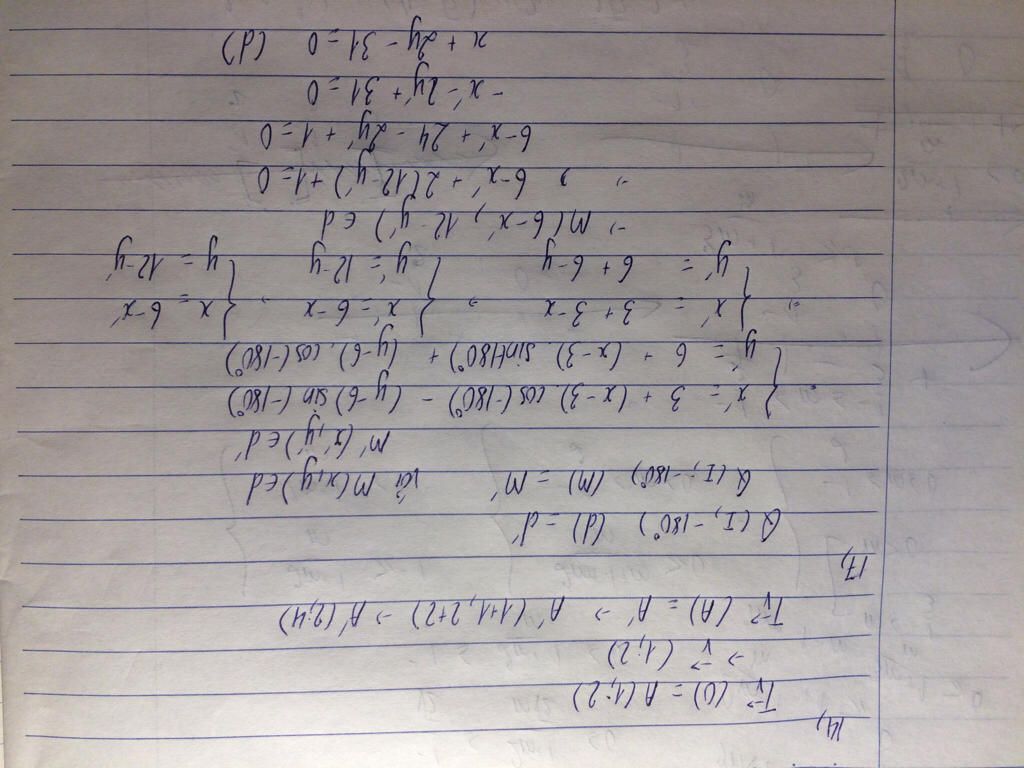 14,
Tv⃗ (O) = A(1;2)
→ v⃗ (1;2)
Tv⃗ (A) = A' → A' (1+1, 2+2) → A' (2;4)
17,
Q(I, -180°) (d) = d'
Q(I; -180°) (M) = M' với M(x,y) ∈ d
M' (x',y') ∈ d'
=> { x' = 3 + (x-3). cos(-180°) - (y-6) sin(-180°)
y' = 6 + (x-3). sin(-180°) + (y-6). cos(-180°)
=> { x' = 3 + 3-x => { x' = 6-x => { x = 6-x'
y' = 6 + 6-y y' = 12-y y = 12-y'
→ M(6-x', 12-y') ∈ d
→ 6-x' + 2(12-y') + 1 = 0
6-x' + 24 - 2y' + 1 = 0
- x' - 2y' + 31 = 0
x + 2y - 31 = 0 (d')